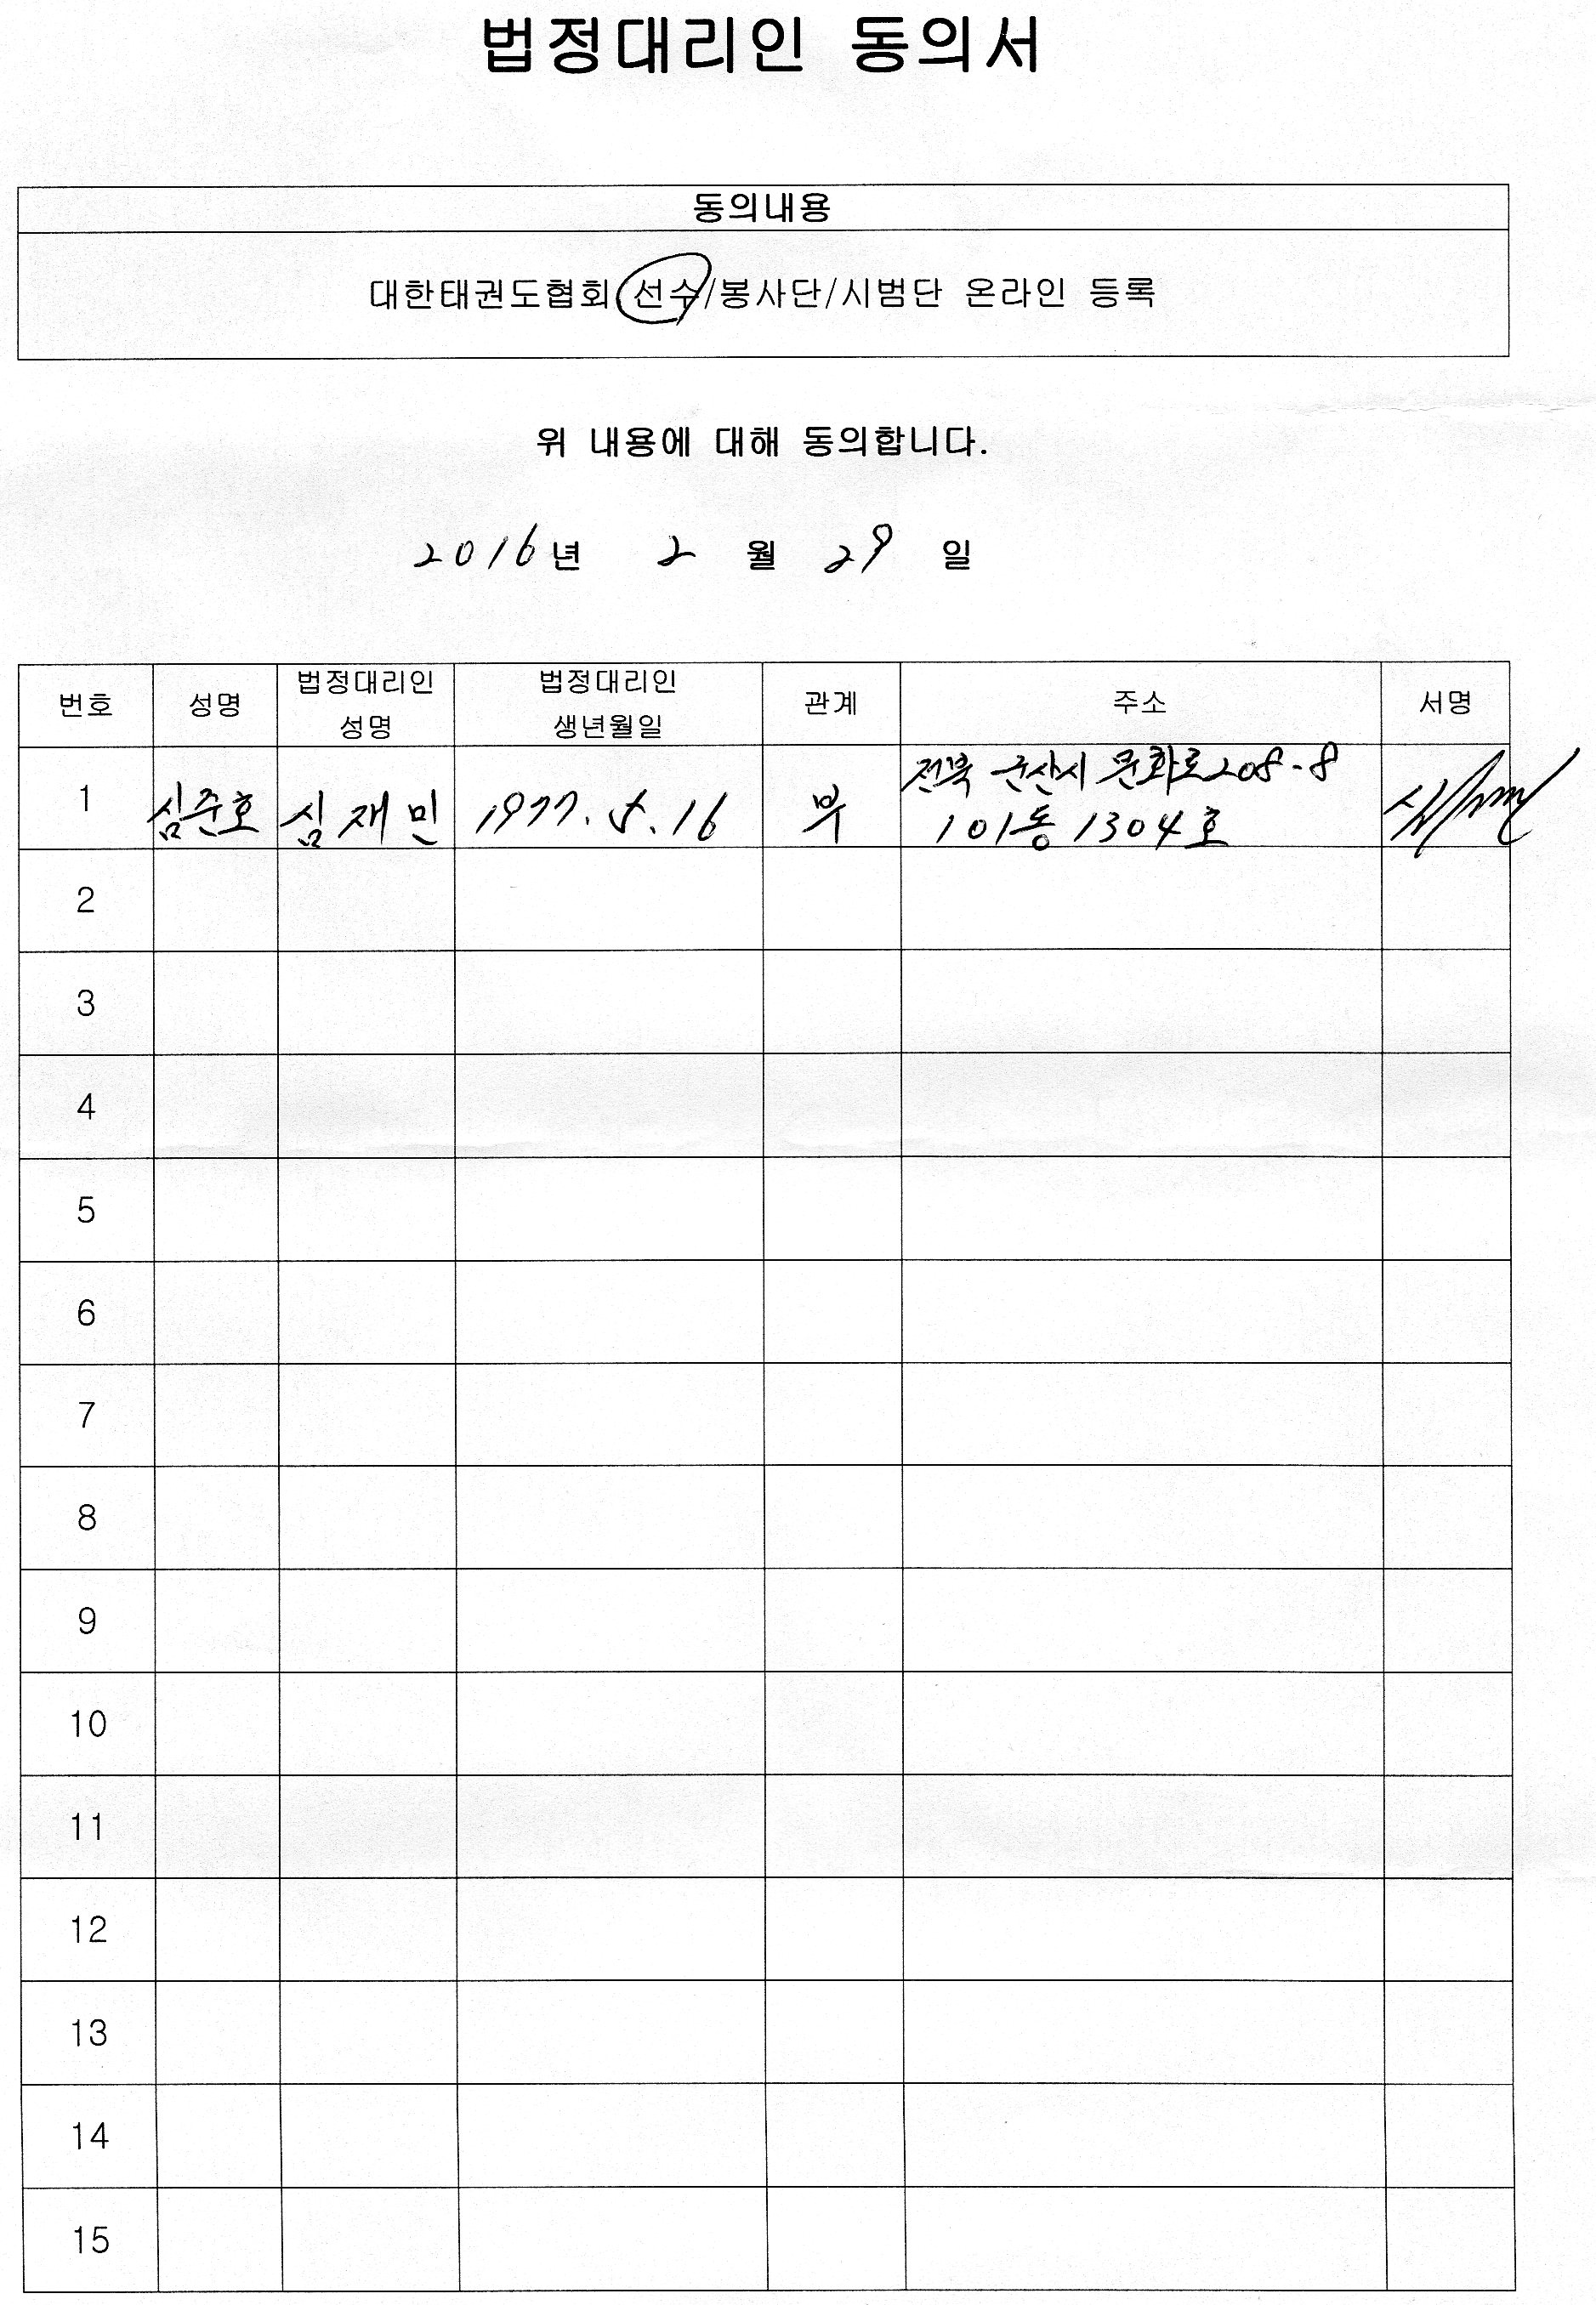 법정대리인 동의서
동의내용
대한태권도협회 선수/봉사단/시범단 온라인 등록
위 내용에 대해 동의합니다.
2016년 2 월 29 일
번호 성명 법정대리인 성명 법정대리인 생년월일 관계 주소 서명
1 심준호 심재민 1977. 5. 16 부 전북 군산시 문화로208-8
101동 1304호
2
3
4
5
6
7
8
9
10
11
12
13
14
15